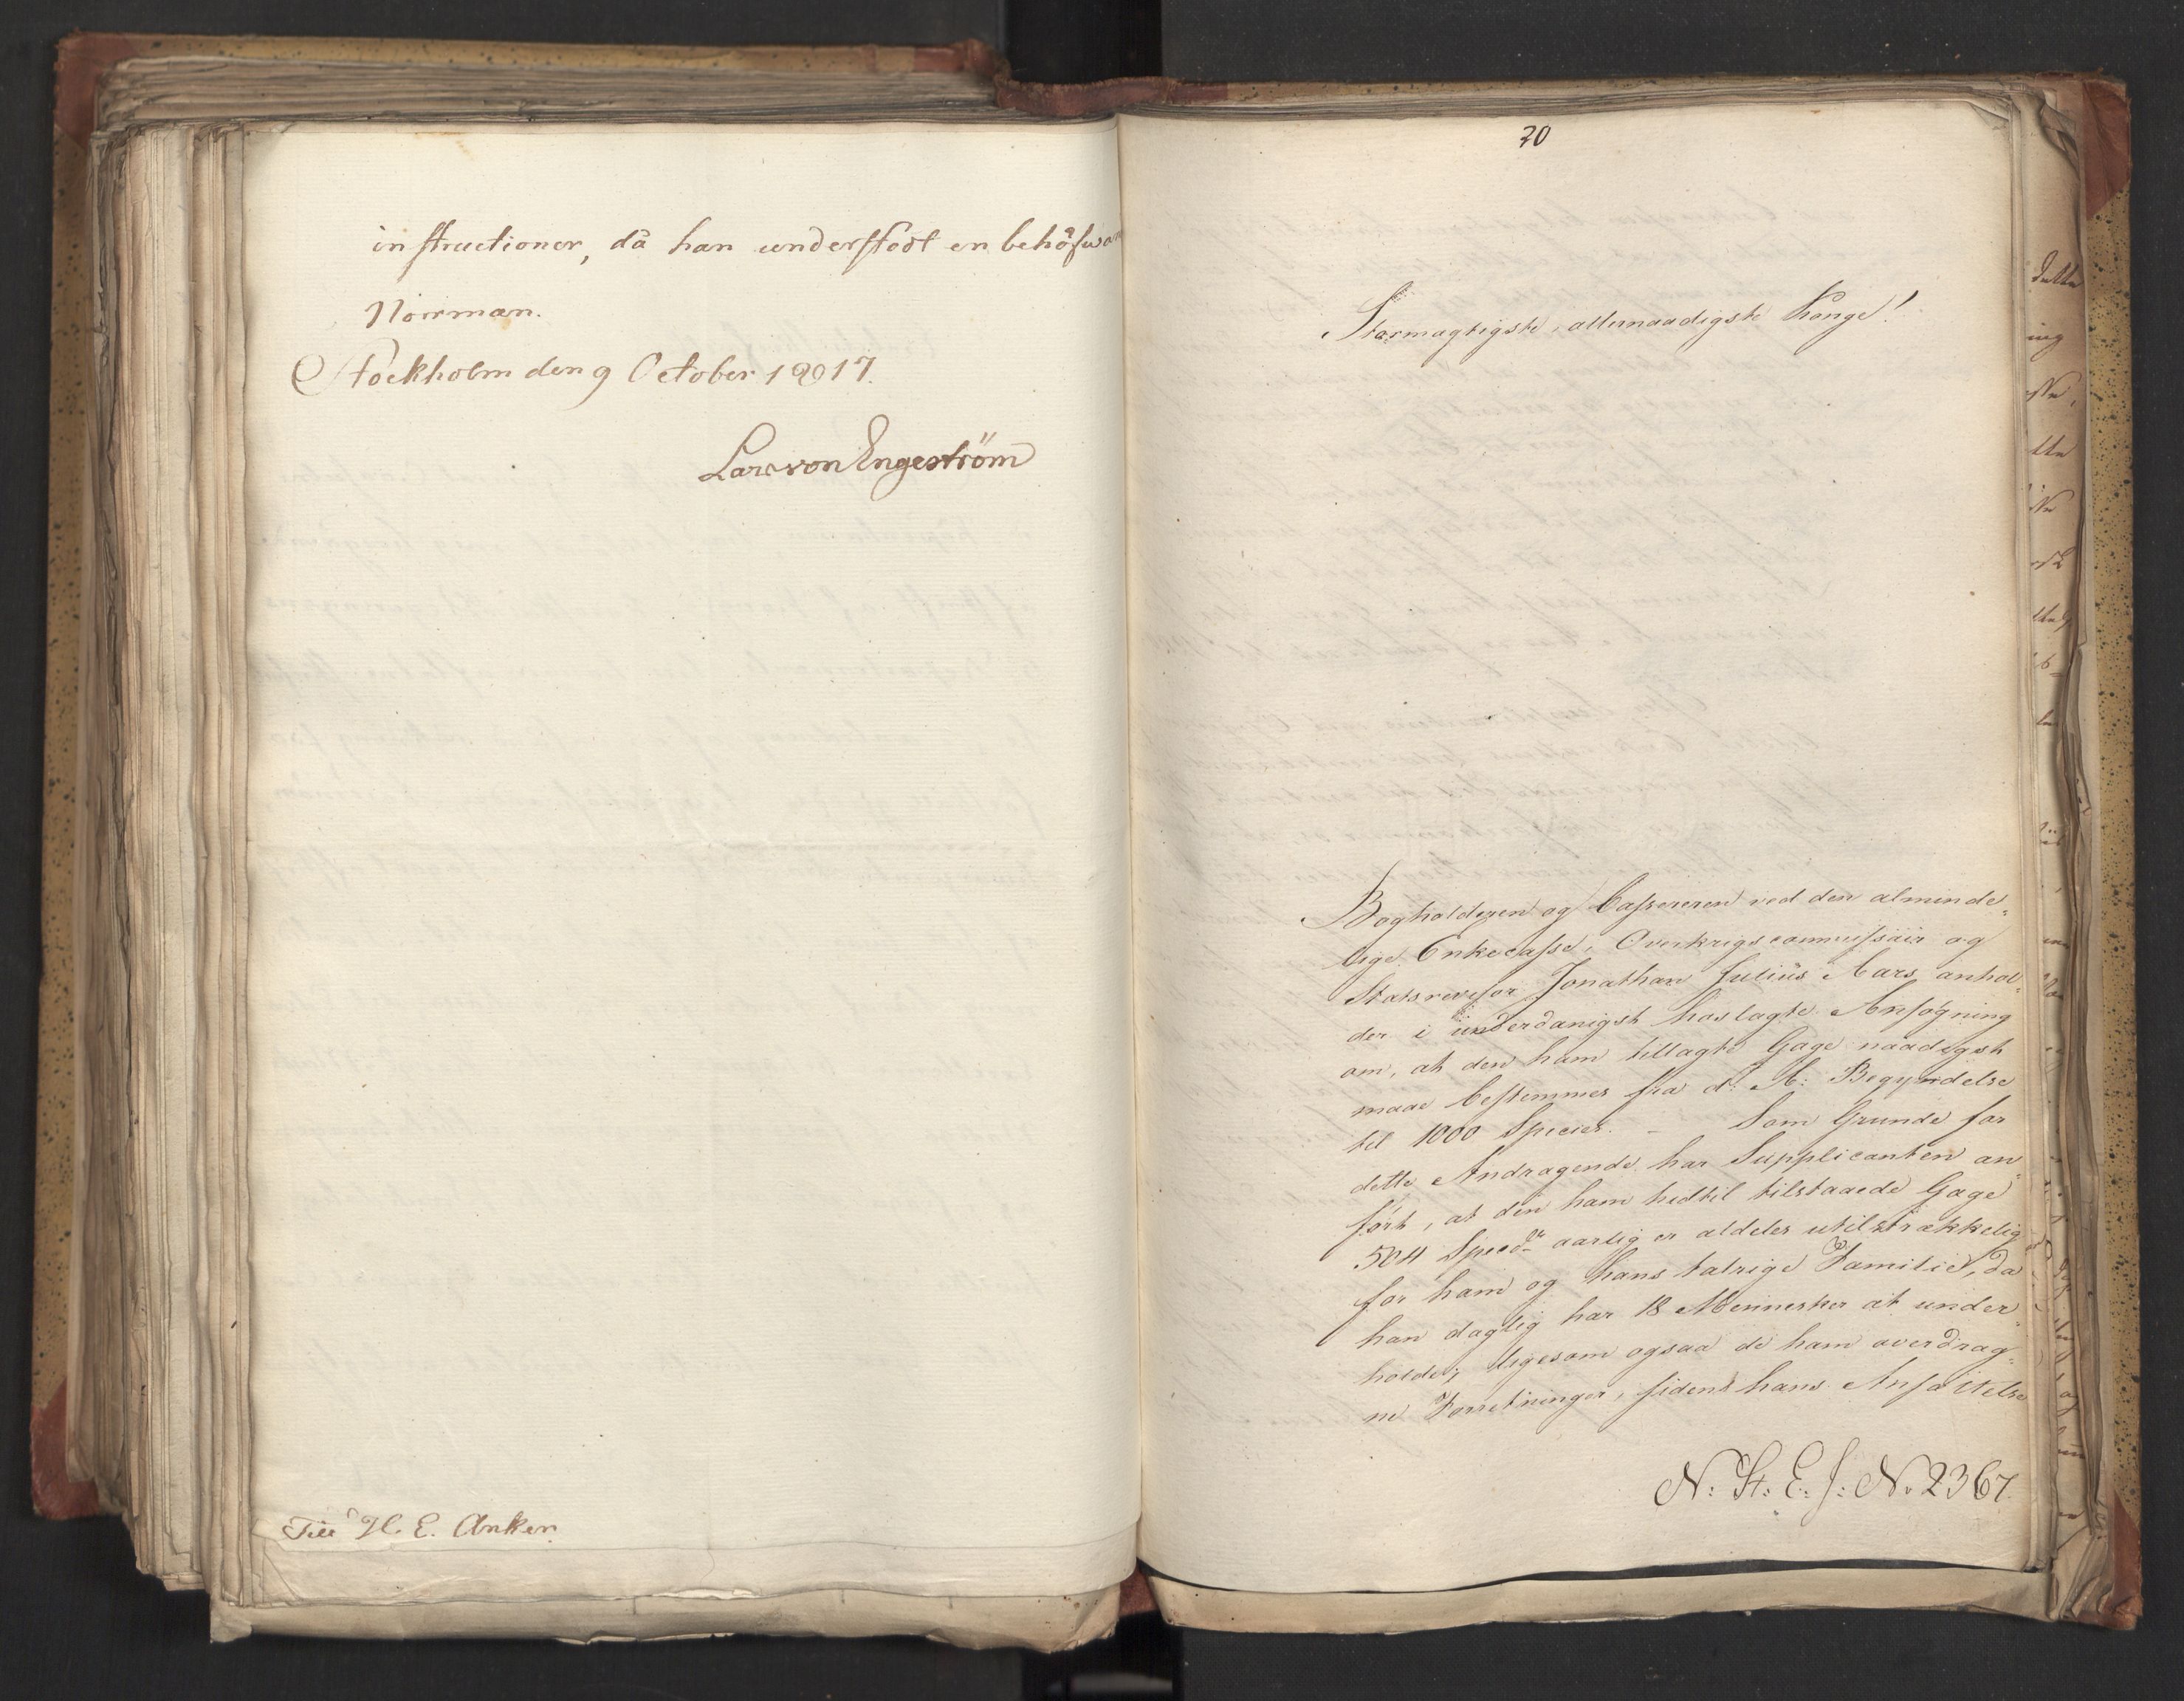 instructioner, då han understödt en behöfwan
Norrman.
Stockholm den 9 October 1817.
Lars von Engeström
Till H. E. Anker
20
Stormægtigste, allernaadigste Konge!
Bogholderen og Cassereren ved den alminde-
lige Enkecasse, Overkrigscommissair og
Statsrevisor Jonathan Julius Aars anhol-
der i underdanigst hoslagte Ansøgning
om, at den ham tillagte Gage naadigst
maae bestemmes fra d: A: Begyndelse
til 1000 Species. – Som Grunde for
dette Andragende har Supplicanten an-
ført, at den ham hidtil tilstaaede Gage
504 Specd. aarlig er aldeles utilstrækkelig
for ham og hans talrige Familie, da
han daglig har 18 Mennesker at under-
holde, ligesom ogsaa de ham overdrag-
ne Forretninger, siden hans Ansættelse
N: St: E. J: No 2367.